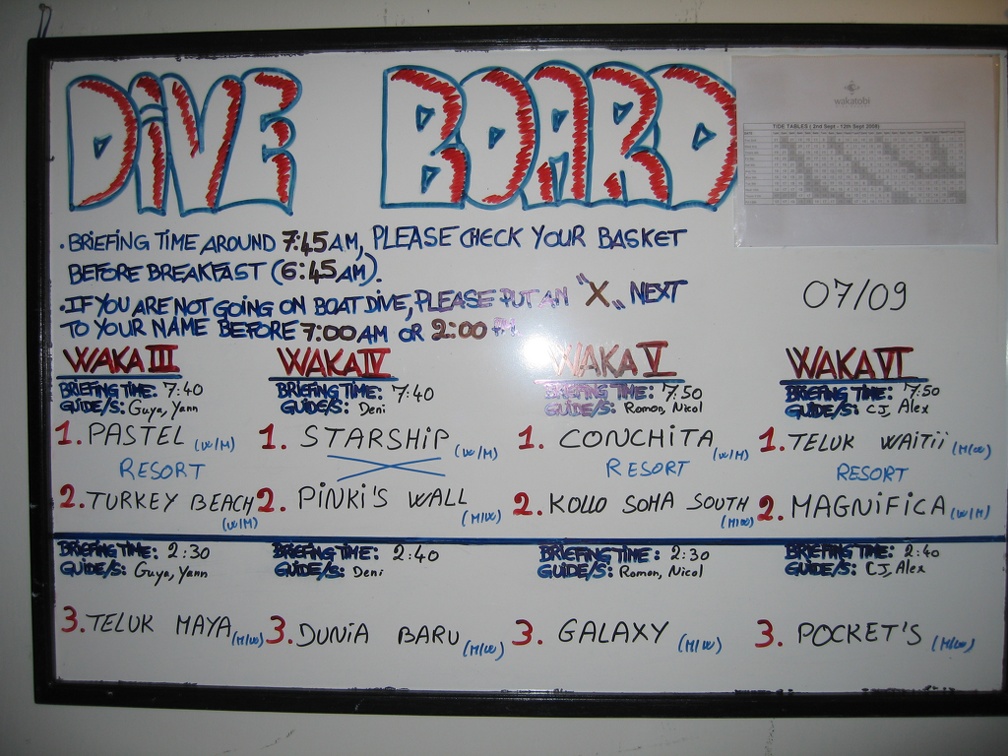 DIVE BOARD
wakatobi
TIDE TABLES ( 2nd Sept - 12th Sept 2009)
· BRIEFING TIME AROUND 7:45 AM, PLEASE CHECK YOUR BASKET
BEFORE BREAKFAST (6:45 AM).
· IF YOU ARE NOT GOING ON BOAT DIVE, PLEASE PUT AN "X" NEXT
TO YOUR NAME BEFORE 7:00 AM OR 2:00 PM
07/09
WAKA III
BRIEFING TIME: 7:40
GUIDE/S: Guya, Yann
1. PASTEL (W/M)
RESORT
2. TURKEY BEACH (W/M)
WAKA IV
BRIEFING TIME: 7:40
GUIDE/S: Deni
1. STARSHIP (W/M)
2. PINKI'S WALL (M/W)
WAKA V
BRIEFING TIME: 7:50
GUIDE/S: Romon, Nicol
1. CONCHITA (W/M)
RESORT
2. KOLLO SOHA SOUTH (M/W)
WAKA VI
BRIEFING TIME: 7:50
GUIDE/S: CJ, Alex
1. TELUK WAITII (M/W)
RESORT
2. MAGNIFICA (W/M)
BRIEFING TIME: 2:30
GUIDE/S: Guya, Yann
3. TELUK MAYA (M/W)
BRIEFING TIME: 2:40
GUIDE/S: Deni
3. DUNIA BARU (M/W)
BRIEFING TIME: 2:30
GUIDE/S: Romon, Nicol
3. GALAXY (M/W)
BRIEFING TIME: 2:40
GUIDE/S: CJ, Alex
3. POCKET'S (M/W)